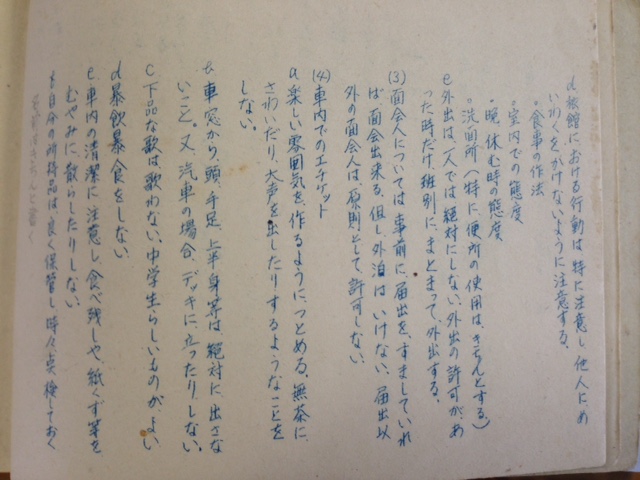 d旅館における行動は、特に注意し、他人にめ
いわくをかけないように注意する。
。食事の作法
。室内での態度
。晩、休む時の態度
。洗面所（特に、便所の使用は、きちんとする）
e外出は、一人では絶対にしない、外出の許可が、あ
った時だけ、班別に、まとまって、外出する。
(3)面会人については、事前に、届出を、すましていれ
ば、面会出来る、但し、外泊は いけない、届出以
外の面会人は、原則として、許可しない。
(4)車内でのエチケット
a楽しい雰囲気を作るようにつとめる。無茶に
さわいだり、大声を出したりするようなことを
しない。
b車窓から、頭、手足、上半身等は、絶対に、出さな
いこと。又、汽車の場合、デッキに、立ったり、しない。
c下品な歌は歌わない、中学生らしいものが、よい
d暴飲暴食をしない。
e車内の清潔に注意し、食べ残しや、紙くず等を
むやみに、散らしたりしない。
f自分の所持品は、良く保管し、時々点検しておく